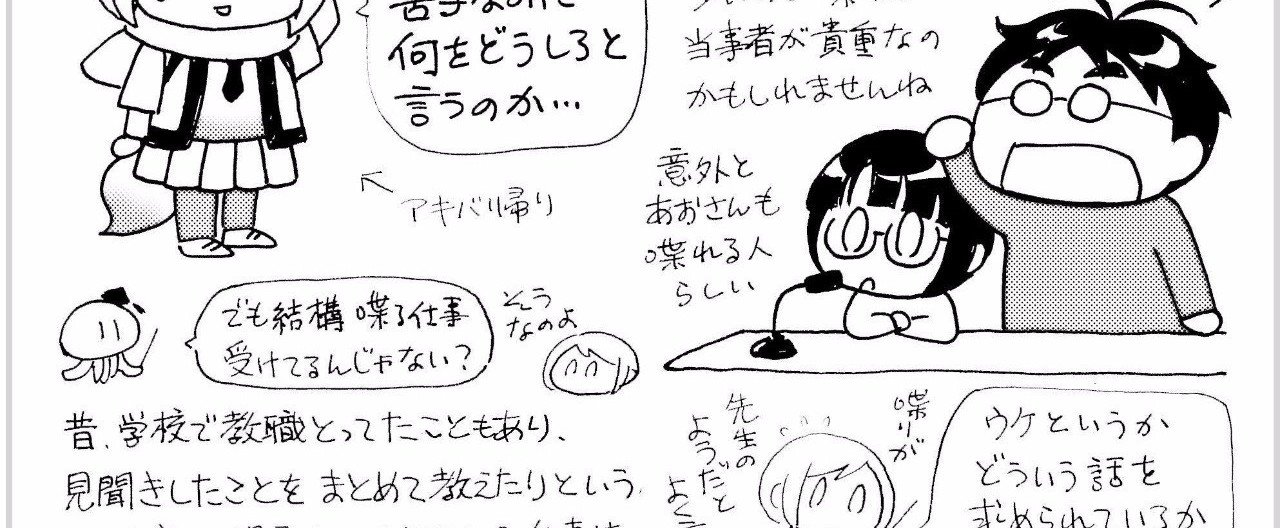 何をどうしろと
言うのか…
アキバ帰り
でも結構喋る仕事
受けてるんじゃない?
そう
なのよ
昔、学校で教職とってたこともあり、
見聞きしたことをまとめて教えたりという
当事者が貴重なの
かもしれませんね
意外と
あおさんも
喋れる人
らしい
喋りが
先生の
ようだと
よく
ウケというか
どういう話を
求められているか